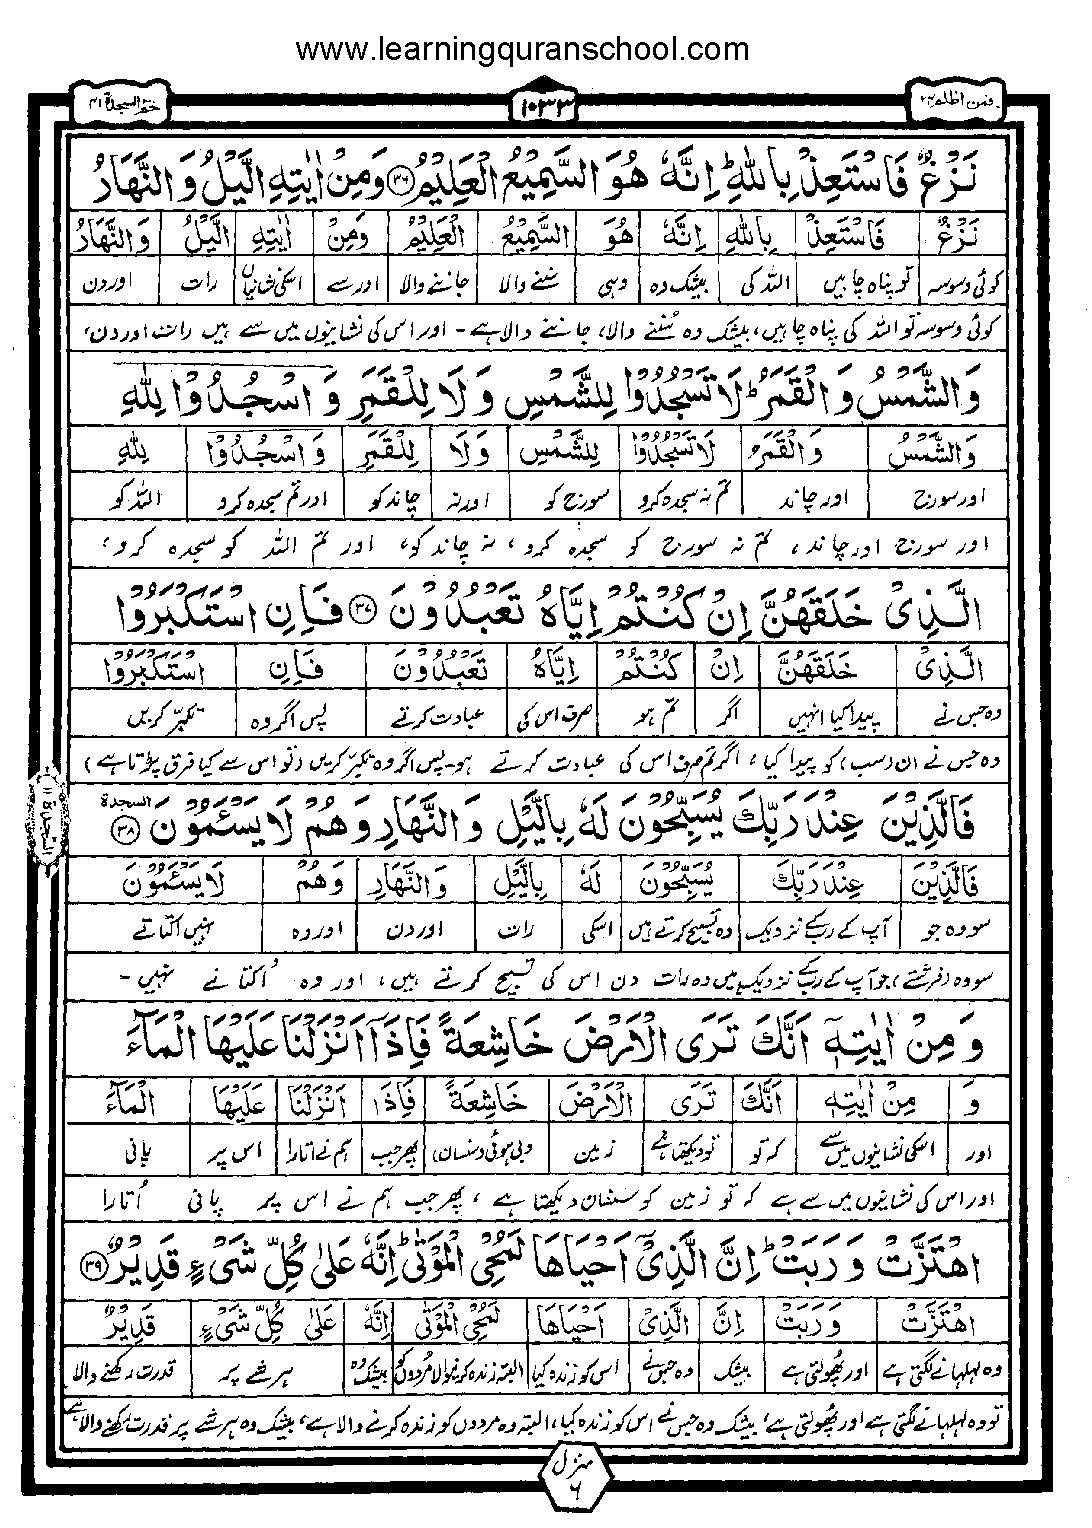 www.learningquranschool.com
فمن اظلم ۲۴
۱۰۳۳
حٰمٓ السجدة ۴۱
نَزْغٌ فَاسْتَعِذْ بِاللّٰهِؕ اِنَّهٗ هُوَ السَّمِیْعُ الْعَلِیْمُ ۳۶ وَمِنْ اٰیٰتِهِ الَّیْلُ وَالنَّهَارُ
نَزْغٌ فَاسْتَعِذْ بِاللّٰهِ اِنَّهٗ هُوَ السَّمِیْعُ الْعَلِیْمُ وَمِنْ اٰیٰتِهِ الَّیْلُ وَالنَّهَارُ
کوئی وسوسہ تو پناہ چاہیں اللہ کی بیشک وہ وہی سننے والا جاننے والا اور سے اسکی نشانیاں رات اور دن
کوئی وسوسہ تو اللہ کی پناہ چاہیں، بیشک وہ سُننے والا، جاننے والا ہے - اور اس کی نشانیوں میں سے ہیں رات اور دن،
وَالشَّمْسُ وَالْقَمَرُؕ لَا تَسْجُدُوْا لِلشَّمْسِ وَلَا لِلْقَمَرِ وَاسْجُدُوْا لِلّٰهِ
وَالشَّمْسُ وَالْقَمَرُ لَا تَسْجُدُوْا لِلشَّمْسِ وَلَا لِلْقَمَرِ وَاسْجُدُوْا لِلّٰهِ
اور سورج اور چاند تم نہ سجدہ کرو سورج کو اور نہ چاند کو اور تم سجدہ کرو اللہ کو
اور سورج اور چاند، تم نہ سورج کو سجدہ کرو، نہ چاند کو، اور تم اللہ کو سجدہ کرو،
الَّذِیْ خَلَقَهُنَّ اِنْ كُنْتُمْ اِیَّاهُ تَعْبُدُوْنَ ۳۷ فَاِنِ اسْتَكْبَرُوْا
الَّذِیْ خَلَقَهُنَّ اِنْ كُنْتُمْ اِیَّاهُ تَعْبُدُوْنَ فَاِنِ اسْتَكْبَرُوْا
وہ جس نے پیدا کیا انہیں اگر تم ہو صرف اس کی عبادت کرتے پس اگر وہ تکبر کریں
وہ جس نے ان (سب) کو پیدا کیا، اگر تم صرف اس کی عبادت کرتے ہو - پس اگر وہ تکبر کریں (تو اس سے کیا فرق پڑتا ہے)
فَالَّذِیْنَ عِنْدَ رَبِّكَ یُسَبِّحُوْنَ لَهٗ بِالَّیْلِ وَالنَّهَارِ وَهُمْ لَا یَسْـَٔمُوْنَ السجدة ۳۸
السجدة ۱۱
فَالَّذِیْنَ عِنْدَ رَبِّكَ یُسَبِّحُوْنَ لَهٗ بِالَّیْلِ وَالنَّهَارِ وَهُمْ لَا یَسْـَٔمُوْنَ
سو وہ جو آپ کے رب کے نزدیک وہ تسبیح کرتے ہیں اسکی رات اور دن اور وہ نہیں اکتاتے
سو وہ (فرشتے) جو آپ کے رب کے نزدیک ہیں وہ رات دن اس کی تسبیح کرتے ہیں، اور وہ اُکتاتے نہیں -
وَمِنْ اٰیٰتِهٖۤ اَنَّكَ تَرَی الْاَرْضَ خَاشِعَةً فَاِذَاۤ اَنْزَلْنَا عَلَیْهَا الْمَآءَ
وَ مِنْ اٰیٰتِهٖ اَنَّكَ تَرَی الْاَرْضَ خَاشِعَةً فَاِذَا اَنْزَلْنَا عَلَیْهَا الْمَآءَ
اور اسکی نشانیوں میں سے کہ تو تو دیکھتا ہے زمین دبی ہوئی (سنسان) پھر جب ہم نے اتارا اس پر پانی
اور اس کی نشانیوں میں سے ہے کہ تو زمین کو سنسان دیکھتا ہے، پھر جب ہم نے اس پر پانی اُتارا
اهْتَزَّتْ وَرَبَتْؕ اِنَّ الَّذِیْۤ اَحْیَاهَا لَمُحْیِ الْمَوْتٰیؕ اِنَّهٗ عَلٰی كُلِّ شَیْءٍ قَدِیْرٌ ۳۹
اهْتَزَّتْ وَرَبَتْ اِنَّ الَّذِیْ اَحْیَاهَا لَمُحْیِ الْمَوْتٰی اِنَّهٗ عَلٰی كُلِّ شَیْءٍ قَدِیْرٌ
وہ لہلہانے لگتی ہے اور پھولتی ہے بیشک وہ جس نے اس کو زندہ کیا البتہ زندہ کرنیوالا مُردوں کو بیشک وہ ہر شے پر قدرت رکھنے والا
تو وہ لہلہانے لگتی ہے اور پھولتی ہے، بیشک وہ جس نے اس کو زندہ کیا، البتہ وہ مردوں کو زندہ کرنے والا ہے، بیشک وہ ہر شے پر قدرت رکھنے والا ہے
منزل ۶